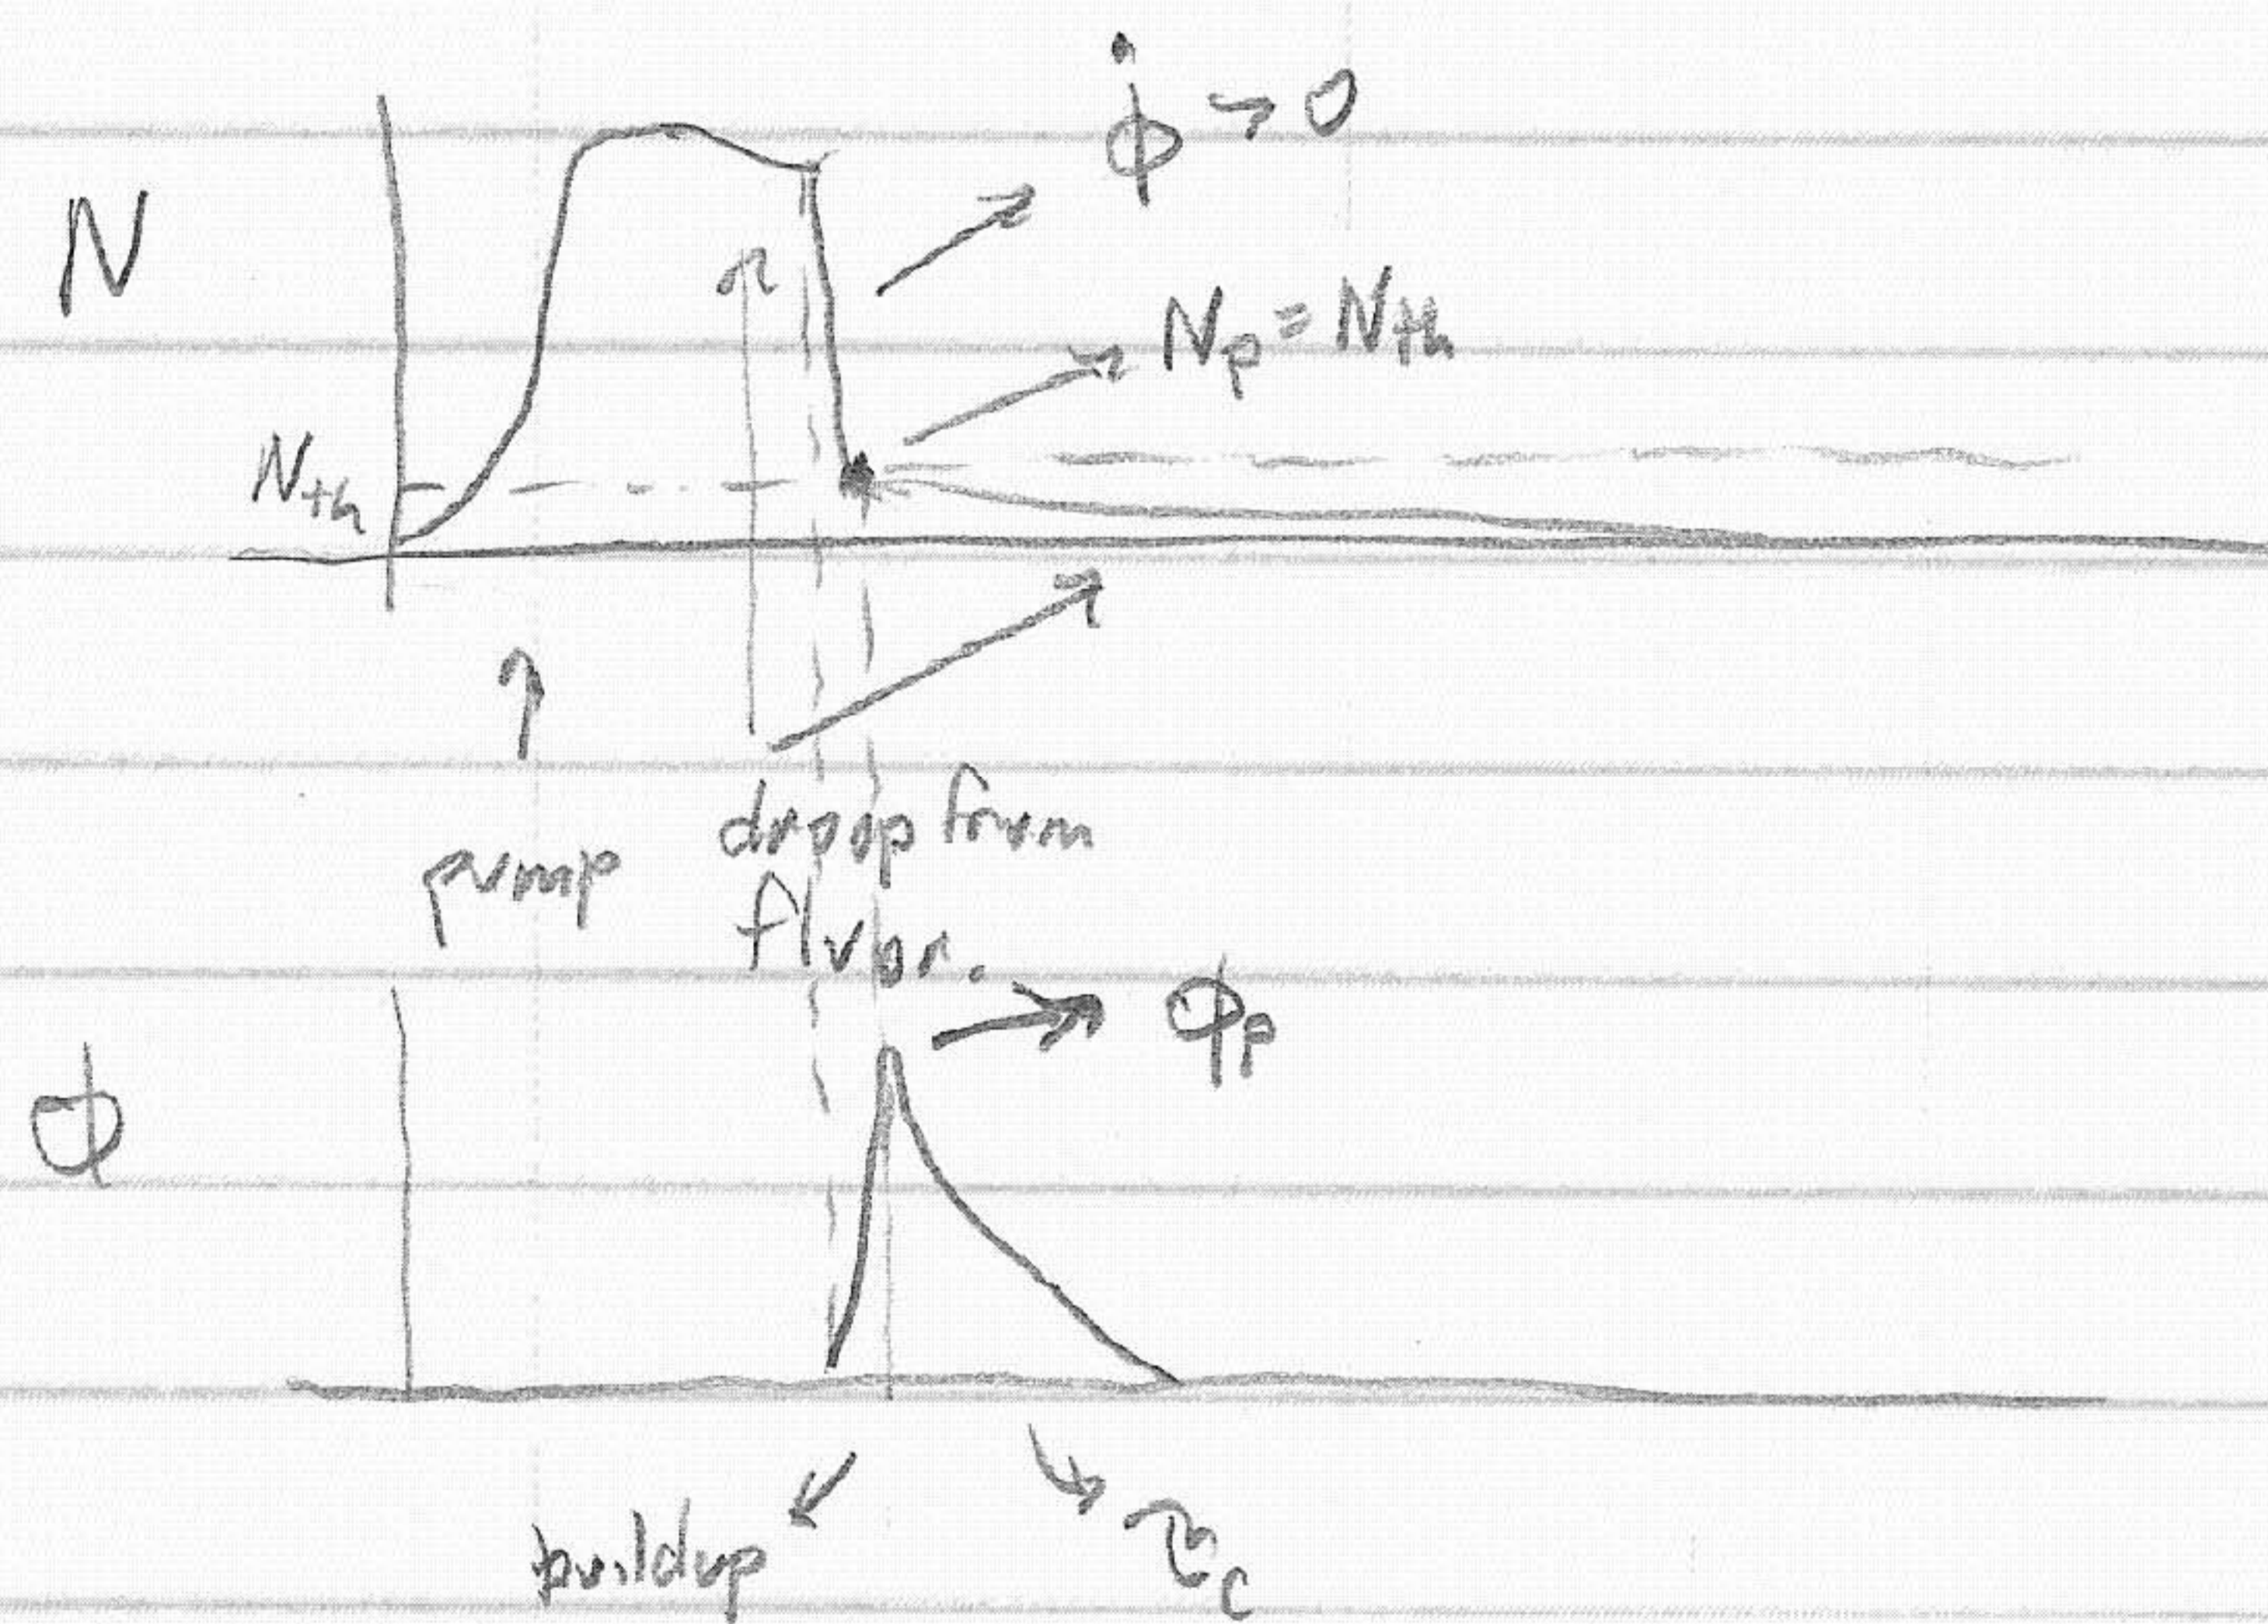 ϕ̇ → 0
N
N_p = N_th
N_th
pump
droop from
fluor.
ϕ_p
ϕ
buildup
τ_c